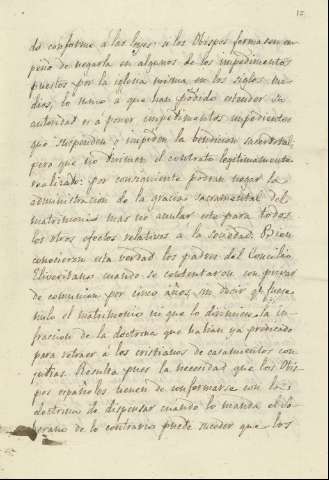 12
do conforme á las leyes: si los Obispos formasen em
peño de negarla en algunos de los impedimentos
puestos por la iglesia misma en los siglos me
dios, lo unico a que han podido estender su
autoridad es a poner impedimentos impedientes
que suspenden o impiden la bendicion sacerdotal;
pero que no dirimen el contrato legitimamente
realizado: por consiguiente podran negar la
administracion de la gracia sacramental del
matrimonio mas no anular este para todos
los otros efectos relativos á la sociedad. Bien
conocieron esta verdad los padres del Concilio
Eliveritano cuando se contentaron con privar
de comunion por cinco años, sin decir qe fuese
nulo el matrimonio ni que lo dirimiese la in
fraccion de la doctrina que habian ya predicado
para retraer á los cristianos de casamientos con
judias. Resulta pues la necesidad que los Obis
pos españoles tienen de conformarse con la
doctrina de dispensar cuando lo manda el So
berano de lo contrario puede suceder que los